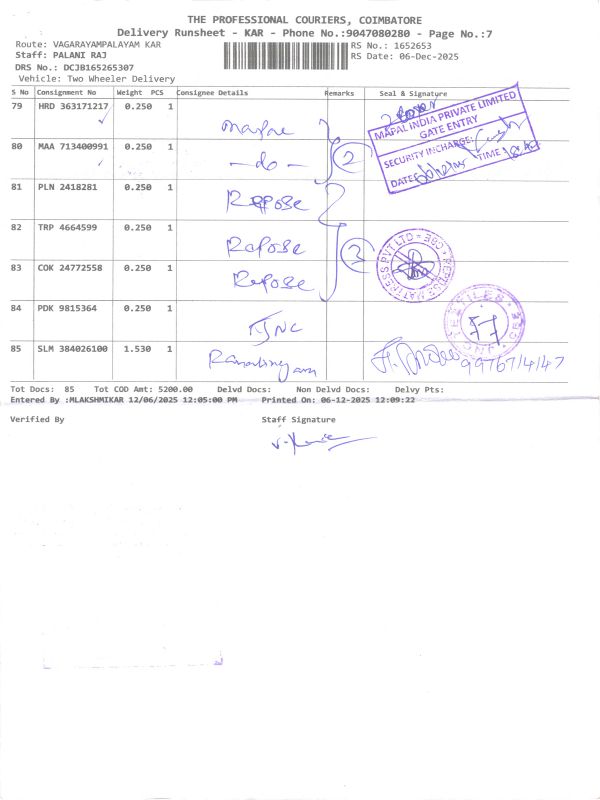 THE PROFESSIONAL COURIERS, COIMBATORE
Delivery Runsheet - KAR - Phone No.:9047080280 - Page No.:7
Route: VAGARAYAMPALAYAM KAR
RS No.: 1652653
Staff: PALANI RAJ
RS Date: 06-Dec-2025
DRS No.: DCJB165265307
Vehicle: Two Wheeler Delivery
S No Consignment No Weight PCS Consignee Details Remarks Seal & Signature
79 HRD 363171217 0.250 1 Mapal
MAPAL INDIA PRIVATE LIMITED
GATE ENTRY
SECURITY INCHARGE:
DATE: TIME
80 MAA 713400991 0.250 1 - do - 2
81 PLN 2418281 0.250 1 Repose
82 TRP 4664599 0.250 1 Repose
3
REPOSE MATTRESS PVT LTD * CBE *
83 COK 24772558 0.250 1 Repose
84 PDK 9815364 0.250 1 KJNC
TEXTILES
CBE
85 SLM 384026100 1.530 1
9976714147
Tot Docs: 85 Tot COD Amt: 5200.00 Delvd Docs: Non Delvd Docs: Delvy Pts:
Entered By :MLAKSHMIKAR 12/06/2025 12:05:00 PM Printed On: 06-12-2025 12:09:22
Verified By Staff Signature